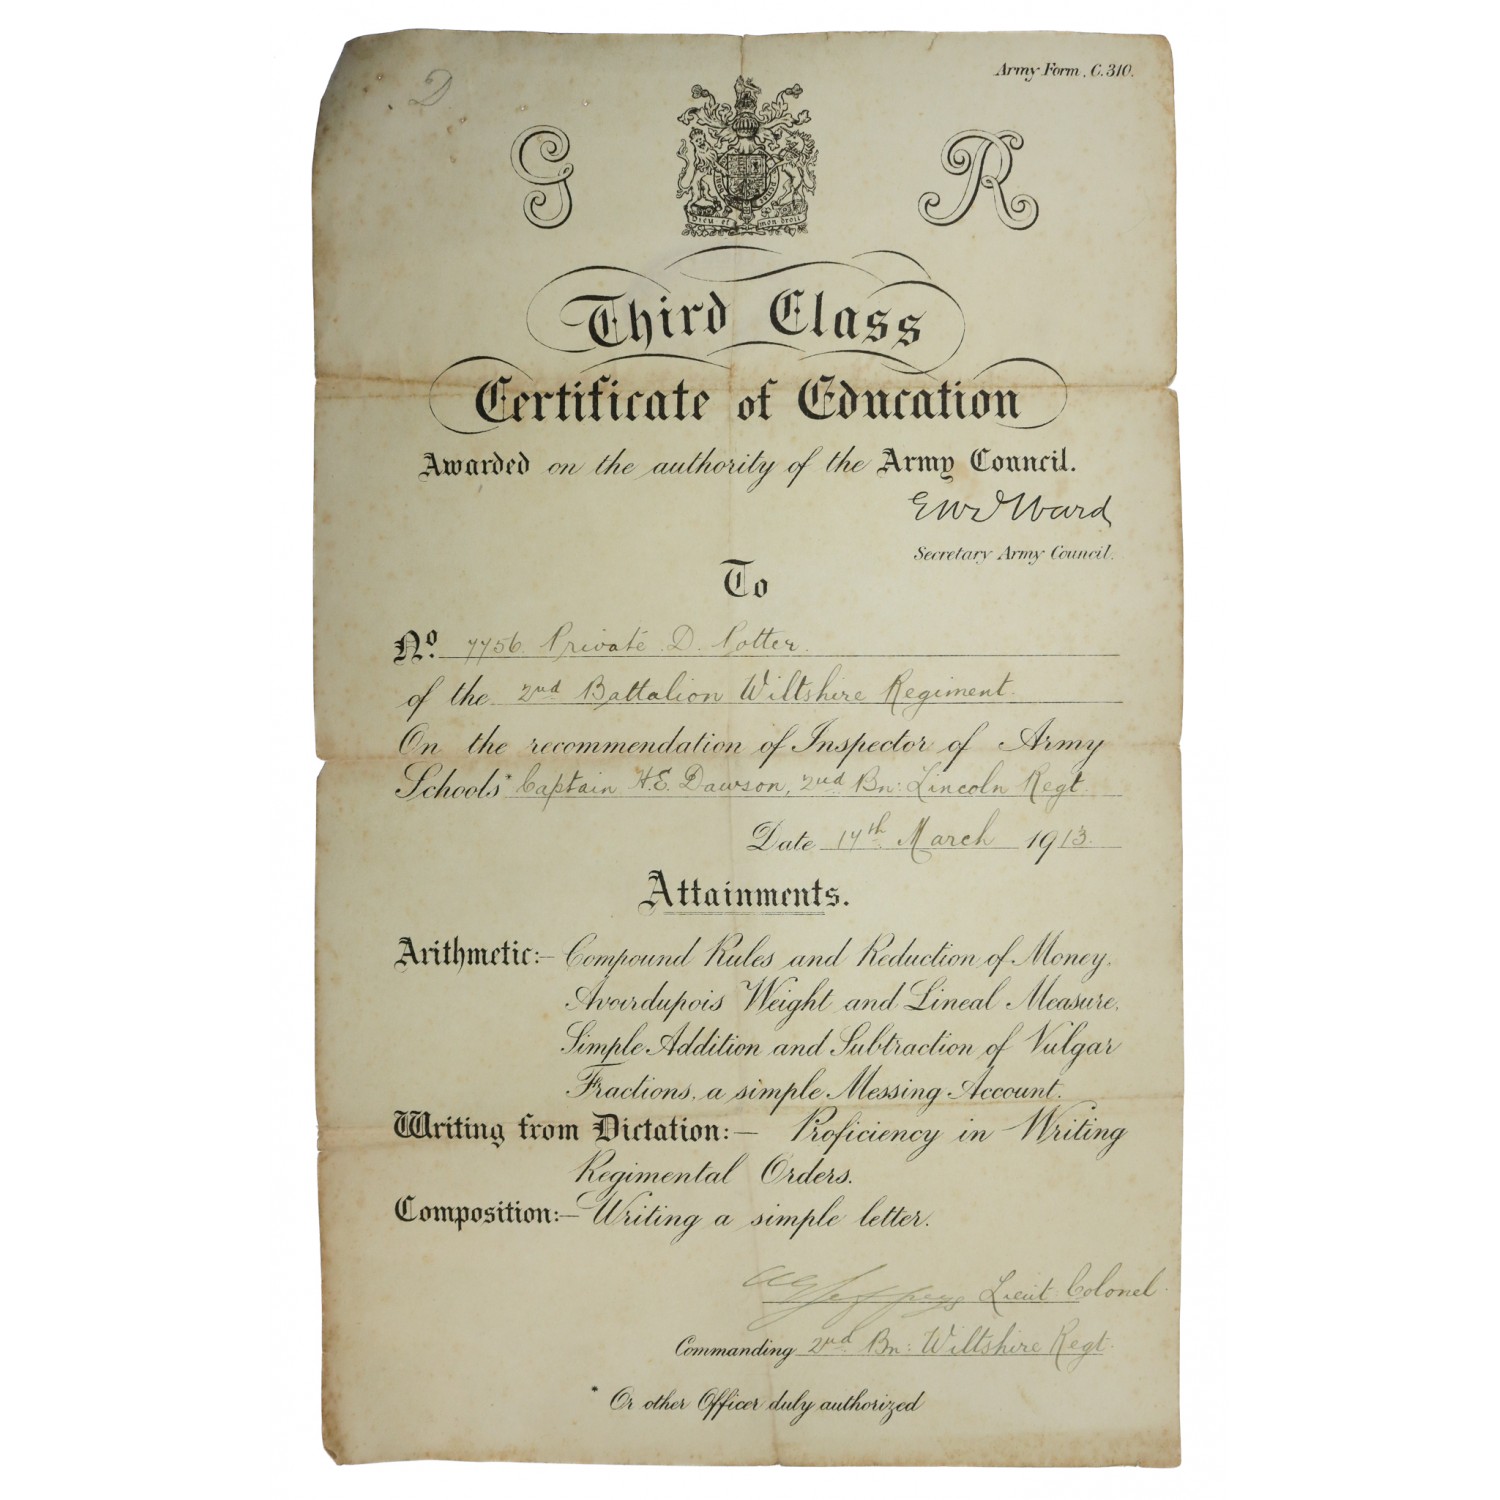 Army Form. C. 310.
D
G R
Dieu et mon droit
Third Class
Certificate of Education
Awarded on the authority of the Army Council.
EWD Ward
Secretary Army Council.
To
No. 7756 Private D. Potter.
of the 2nd Battalion Wiltshire Regiment.
On the recommendation of Inspector of Army
Schools* Captain H.E. Dawson, 2nd Bn: Lincoln Regt.
Date 14th March 1913.
Attainments.
Arithmetic:- Compound Rules and Reduction of Money,
Avoirdupois Weight and Lineal Measure,
Simple Addition and Subtraction of Vulgar
Fractions, a simple Messing Account.
Writing from Dictation:- Proficiency in Writing
Regimental Orders.
Composition:- Writing a simple letter.
Lieut Colonel.
Commanding 2nd Bn: Wiltshire Regt.
* Or other Officer duly authorized